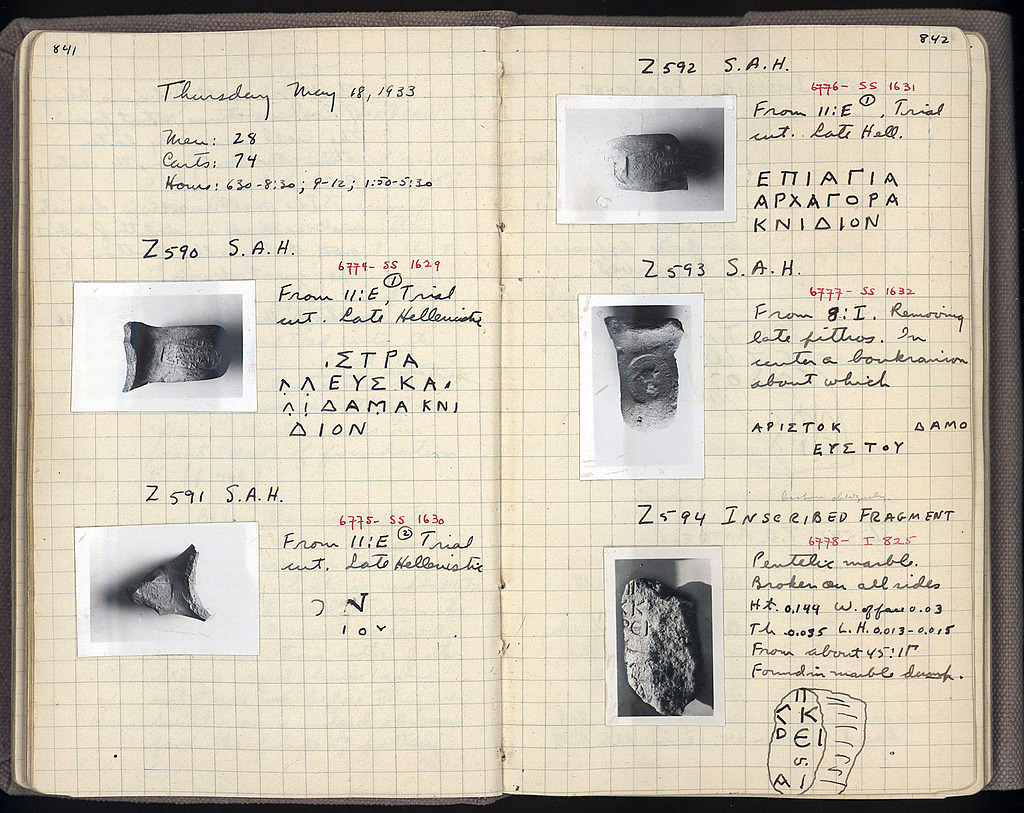 841
Thursday May 18, 1933
Men: 28
Carts: 74
Hours: 630-8:30; 9-12; 1:30-5:30
Z 590 S.A.H.
6774- SS 1629
From 11:E ①, Trial
cut. Late Hellenistic
.ΣΤΡΑ
Λ̣Λ ΕΥΣ ΚΑ.
Λ̣Ι̣ ΔΑΜΑ ΚΝΙ
ΔΙΟΝ
Z 591 S.A.H.
6775- SS 1630
From 11:E ② Trial
cut. Late Hellenistic
Ν
ΙΟΥ
842
Z 592 S.A.H.
6776- SS 1631
From 11:E ①, Trial
cut. Late Hell.
ΕΠΙΑΓΙΑ
ΑΡΧΑΓΟΡΑ
ΚΝΙΔΙΟΝ
Z 593 S.A.H.
6777- SS 1632
From 8:I. Removing
late pithos. In
center a boukranion
about which
ΑΡΙΣΤΟΚ ΔΑΜΟ
ΕΥΣΤΟΥ
Z 594 INSCRIBED FRAGMENT
6778- I 825
Pentelic marble.
Broken on all sides
Ht. 0.144 W. of face 0.03
Th. 0.035 L.H. 0.013-0.015
From about 45:ΙΓ
Found in marble dump.
Π
Κ
Ρ ΕΙ
ΑΙ